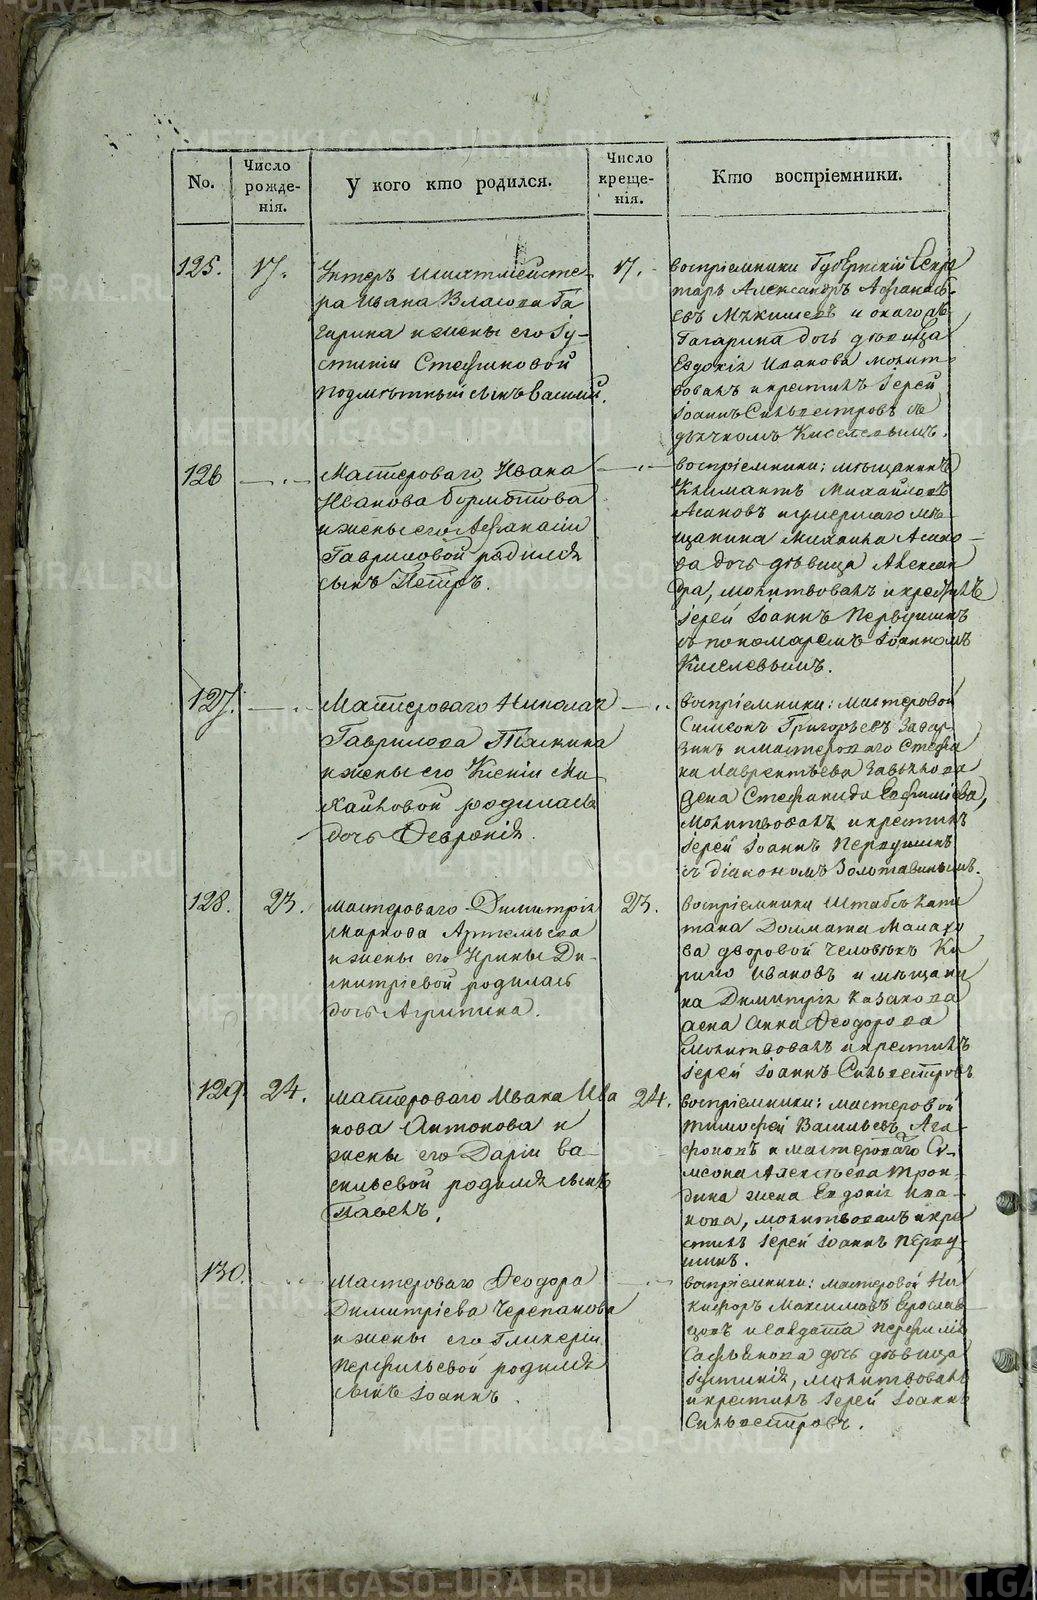 No.
Число рожде-нія.
У кого кто родился.
Число креще-нія.
Кто воспріемники.
125.
17.
Унтеръ шихтмейсте-
ра Ивана Власова Га
гарина и жены его Іу-
стиніи Стефановой
сынъ Василій.
17.
воспріемники Губернскій Секре
тарь Александръ Афанась-
евъ и онаго
Гагарина дочь дѣвица
Евдокія Иванова молит-
вовалъ и крестилъ Іерей
Іоаннъ Сильвестровъ съ
дьячкомъ Киселевымъ.
126
Мастероваго Ивана
Иванова Бормотова
и жены его Афанасіи
Гавриловой родился
сынъ Петръ.
воспріемники: мѣщанинъ
Михайловъ
Асановъ и умершаго мѣ-
щанина Михаила Асано-
ва дочь дѣвица Алексан
дра, молитвовалъ и крестилъ
Іерей Іоаннъ Первушинъ
съ пономаремъ Іоанномъ
Киселевымъ.
127.
Мастероваго Николая
Гаврилова
и жены его Ксеніи Ми
хайловой родилась
дочь Февронія.
воспріемники: мастеровой
Симеонъ Григорьевъ
и мастероваго Стефа
на Лаврентьева
жена Стефанида Евфиміева,
молитвовалъ и крестилъ
Іерей Іоаннъ Первушинъ
съ діакономъ Золотавинымъ.
128.
23.
мастероваго Димитрія
Маркова Артемьева
и жены его Ирины Ди-
митріевой родилась
дочь Агрипина.
23.
воспріемники Штабсъ Капи
тана
ва дворовой человѣкъ Ки
рило Ивановъ и мѣщани
на Димитрія Казакова
жена Анна Феодорова
молитвовалъ и крестилъ
Іерей Іоаннъ Сильвестровъ
129.
24.
мастероваго Ивана Ива
нова Антонова и
жены его Даріи Ва-
сильевой родился сынъ
Павелъ.
24.
воспріемники: мастеровой
Тимофей Васильевъ Ага-
фоновъ и мастероваго Си-
меона Алексѣева
жена Евдокія Ива-
нова, молитвовалъ и кре
стилъ Іерей Іоаннъ Перву-
шинъ.
130.
Мастероваго Феодора
Димитріева Черепанова
и жены его Гликеріи
Перфильевой родился
сынъ Іоаннъ.
воспріемники: мастеровой Ни
кифоръ Максимовъ Ерослав
цовъ и солдата Перфилія
дочь дѣвица
Іустинія, молитвовалъ
и крестилъ Іерей Іоаннъ
Сильвестровъ.
METRIKI.GASO-URAL.RU